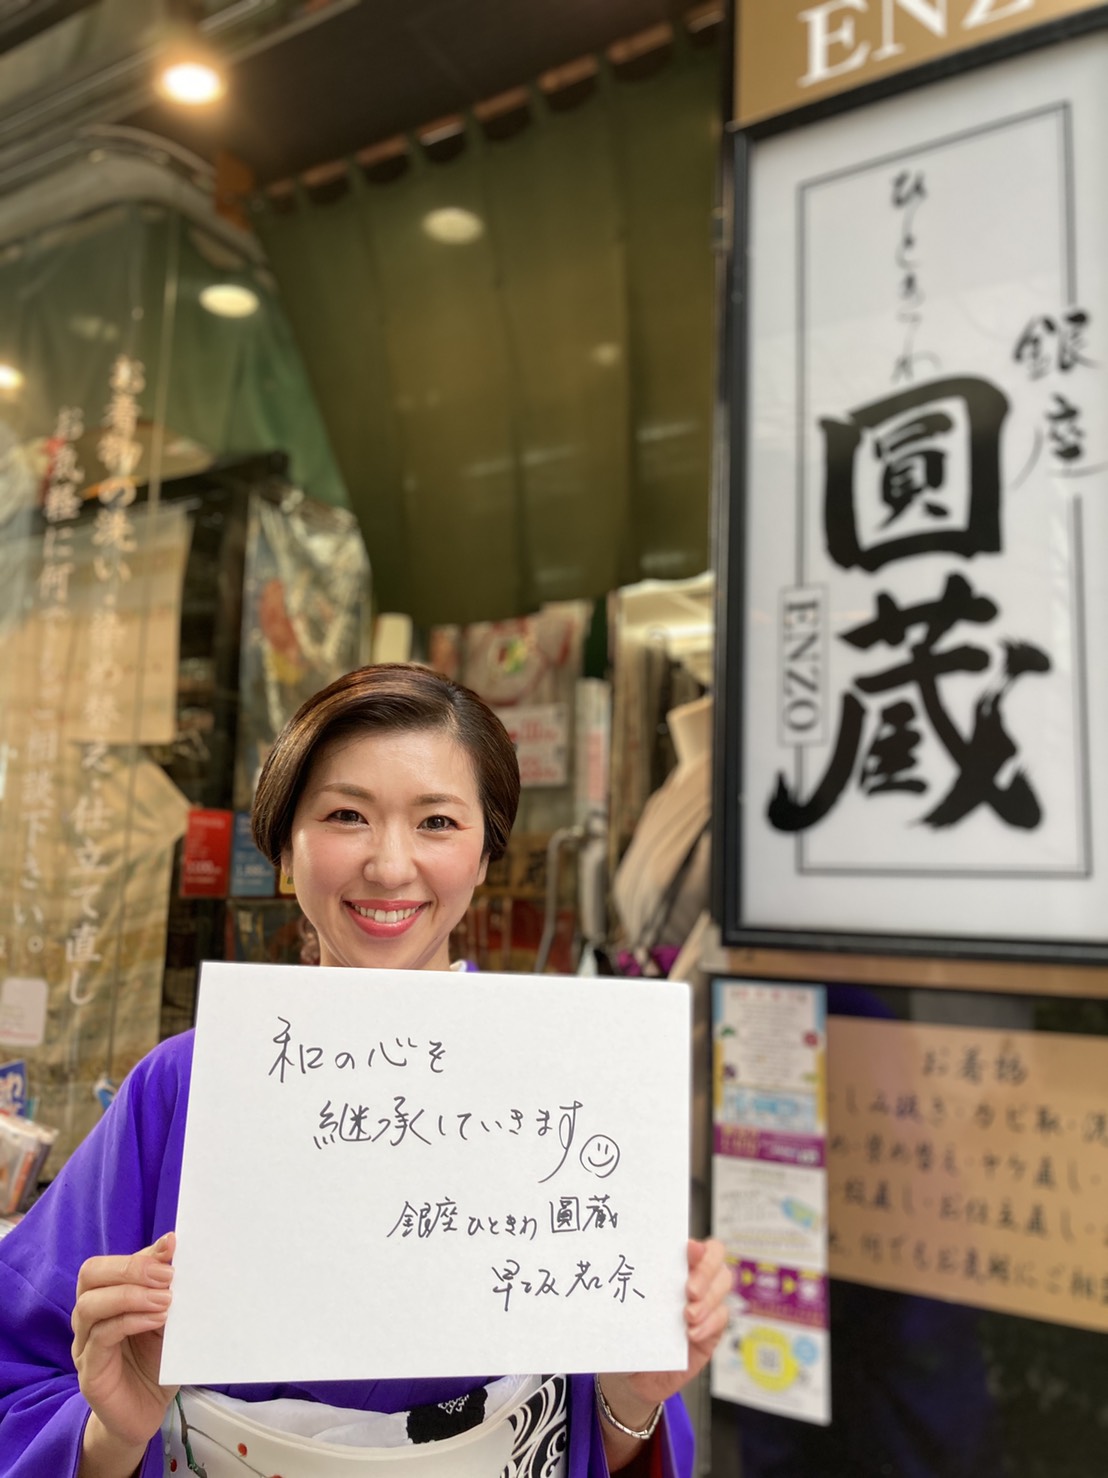 ENZ
ひときわ
銀座
圓蔵
ENZO
お着物の洗い・染め替え・仕立て直し
お気軽に何でもご相談下さい。
和の心を
継承していきます
銀座ひときわ 圓蔵
早坂若奈
お着物
しみ抜き・カビ取・洗
め・染め替え・ヤケ直し・
直し・お仕立直し・
何でもお気軽にご相談